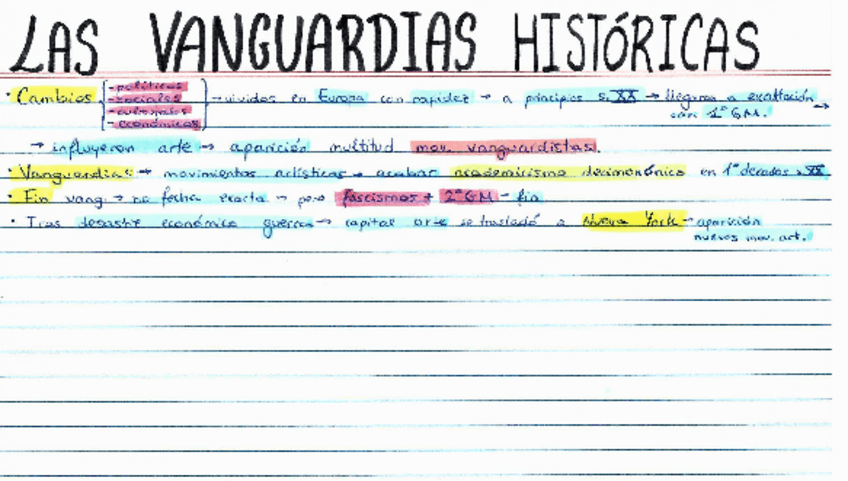 LAS VANGUARDIAS HISTÓRICAS
· Cambios
- políticos
- sociales
- culturales
- económicos
→ vividos en Europa con rapidez → a principios s. XX → llegaron a exaltación
con 1ª GM. →
→ influyeron arte → aparición multitud mov. vanguardistas.
· Vanguardias → movimientos artísticos → acabar academicismo decimonónico en 1ª décadas s. XX
· Fin vang. → no fecha exacta → pero fascismos + 2ª GM - fin
· Tras desastre económico guerra → capital arte se trasladó a Nueva York → aparición
nuevos mov. art.